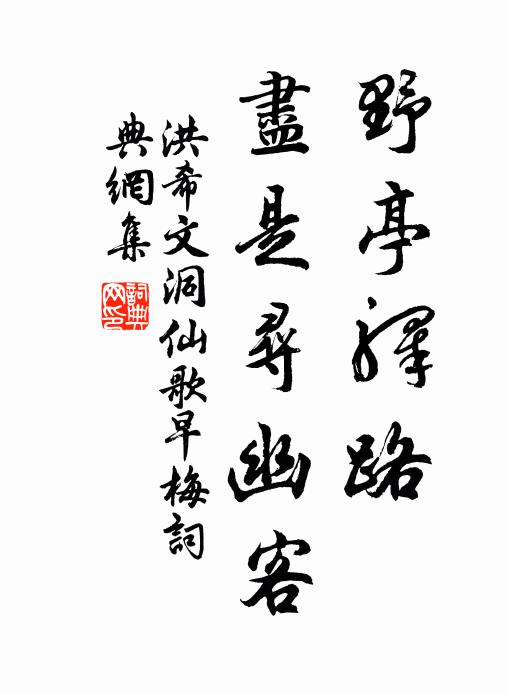 野亭驛路
盡是尋幽客
洪希文洞仙歌早梅詞
典網集
詞典網印